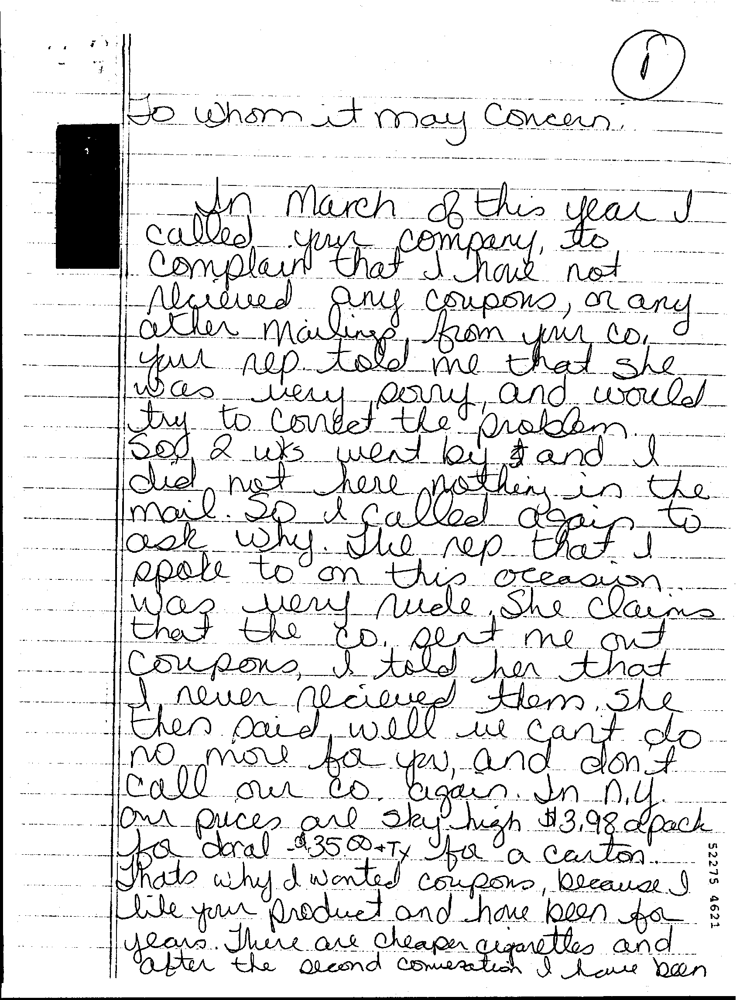 1
To whom it may Concern,
In March of this year I
called your company, to
complain that I have not
recieved any coupons, or any
other mailings from your co.
your rep told me that she
was very sorry, and would
try to correct the problem.
So 2 wks went by and I
did not here nothing in the
mail. So I called again to
ask why. The rep that I
spoke to on this occasion
was very rude. She claims
that the co. sent me out
coupons, I told her that
I never recieved them. she
then said, well we can't do
no more for you, and don't
call our co. again. In N.Y.
our prices are sky high $3.98 a pack
for doral $35.00+Tx for a carton.
Thats why I wanted coupons, because I
like your product and have been for
years. There are cheaper cigarettes and
after the second conversation I have been
52275 4621